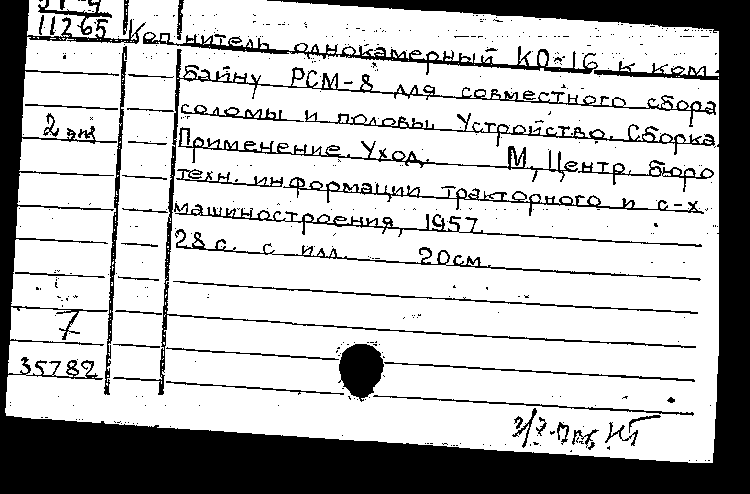 11265
Копнитель однокамерный КО-16 к ком-
байну РСМ-8 для совместного сбора
соломы и половы. Устройство. Сборка.
2 экз
Применение. Уход. М, Центр. бюро
техн. информации тракторного и с-х
машиностроения, 1957.
28 с. с илл. 20 см.
7
35782